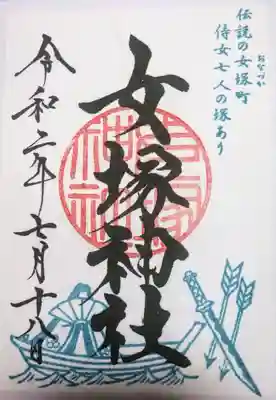 伝説の女塚町
おなづか
侍女七人の塚あり
女塚神社
女塚神社
令和二年七月十八日